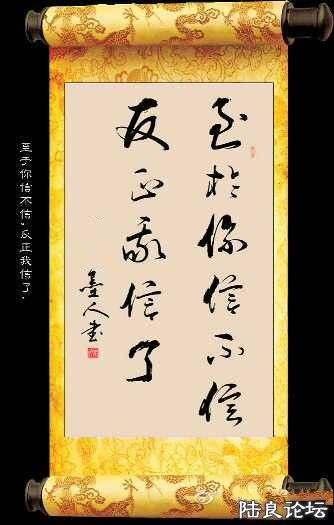 至於你信不信
反正我信了
墨人书
至于你信不信，反正我信了.
陆良论坛